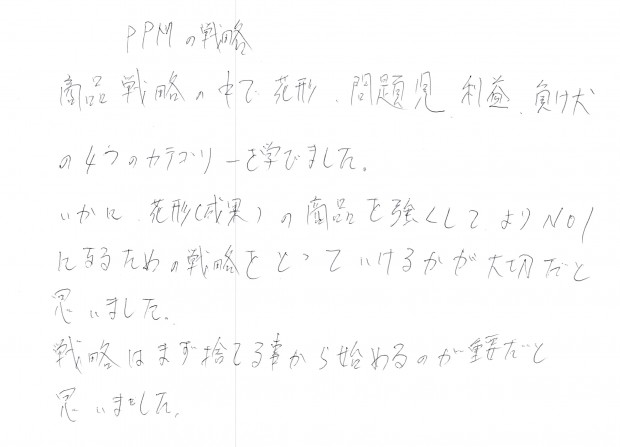 PPMの戦略
商品戦略の中で花形、問題児、利益、負け犬
の4つのカテゴリーを学びました。
いかに花形(成果)の商品を強くしてよりNO1
になるための戦略をとっていけるかが大切だと
思いました。
戦略はまず捨てる事から始めるのが重要だと
思いました。